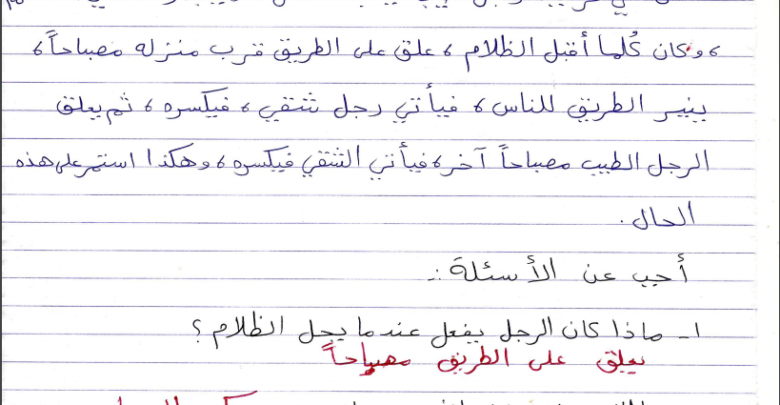 ، وكان كُلما أقبل الظلام ، علق على الطريق قرب منزله مصباحاً ،
ينير الطريق للناس ، فيأتي رجل شقي ، فيكسره ، ثم يعلق
الرجل الطيب مصباحاً آخر ، فيأتي الشقي فيكسره ، وهكذا استمر على هذه
الحال .
أجب عن الأسئلة :-
١- ماذا كان الرجل يفعل عندما يحل الظلام ؟
يعلق على الطريق مصباحاً